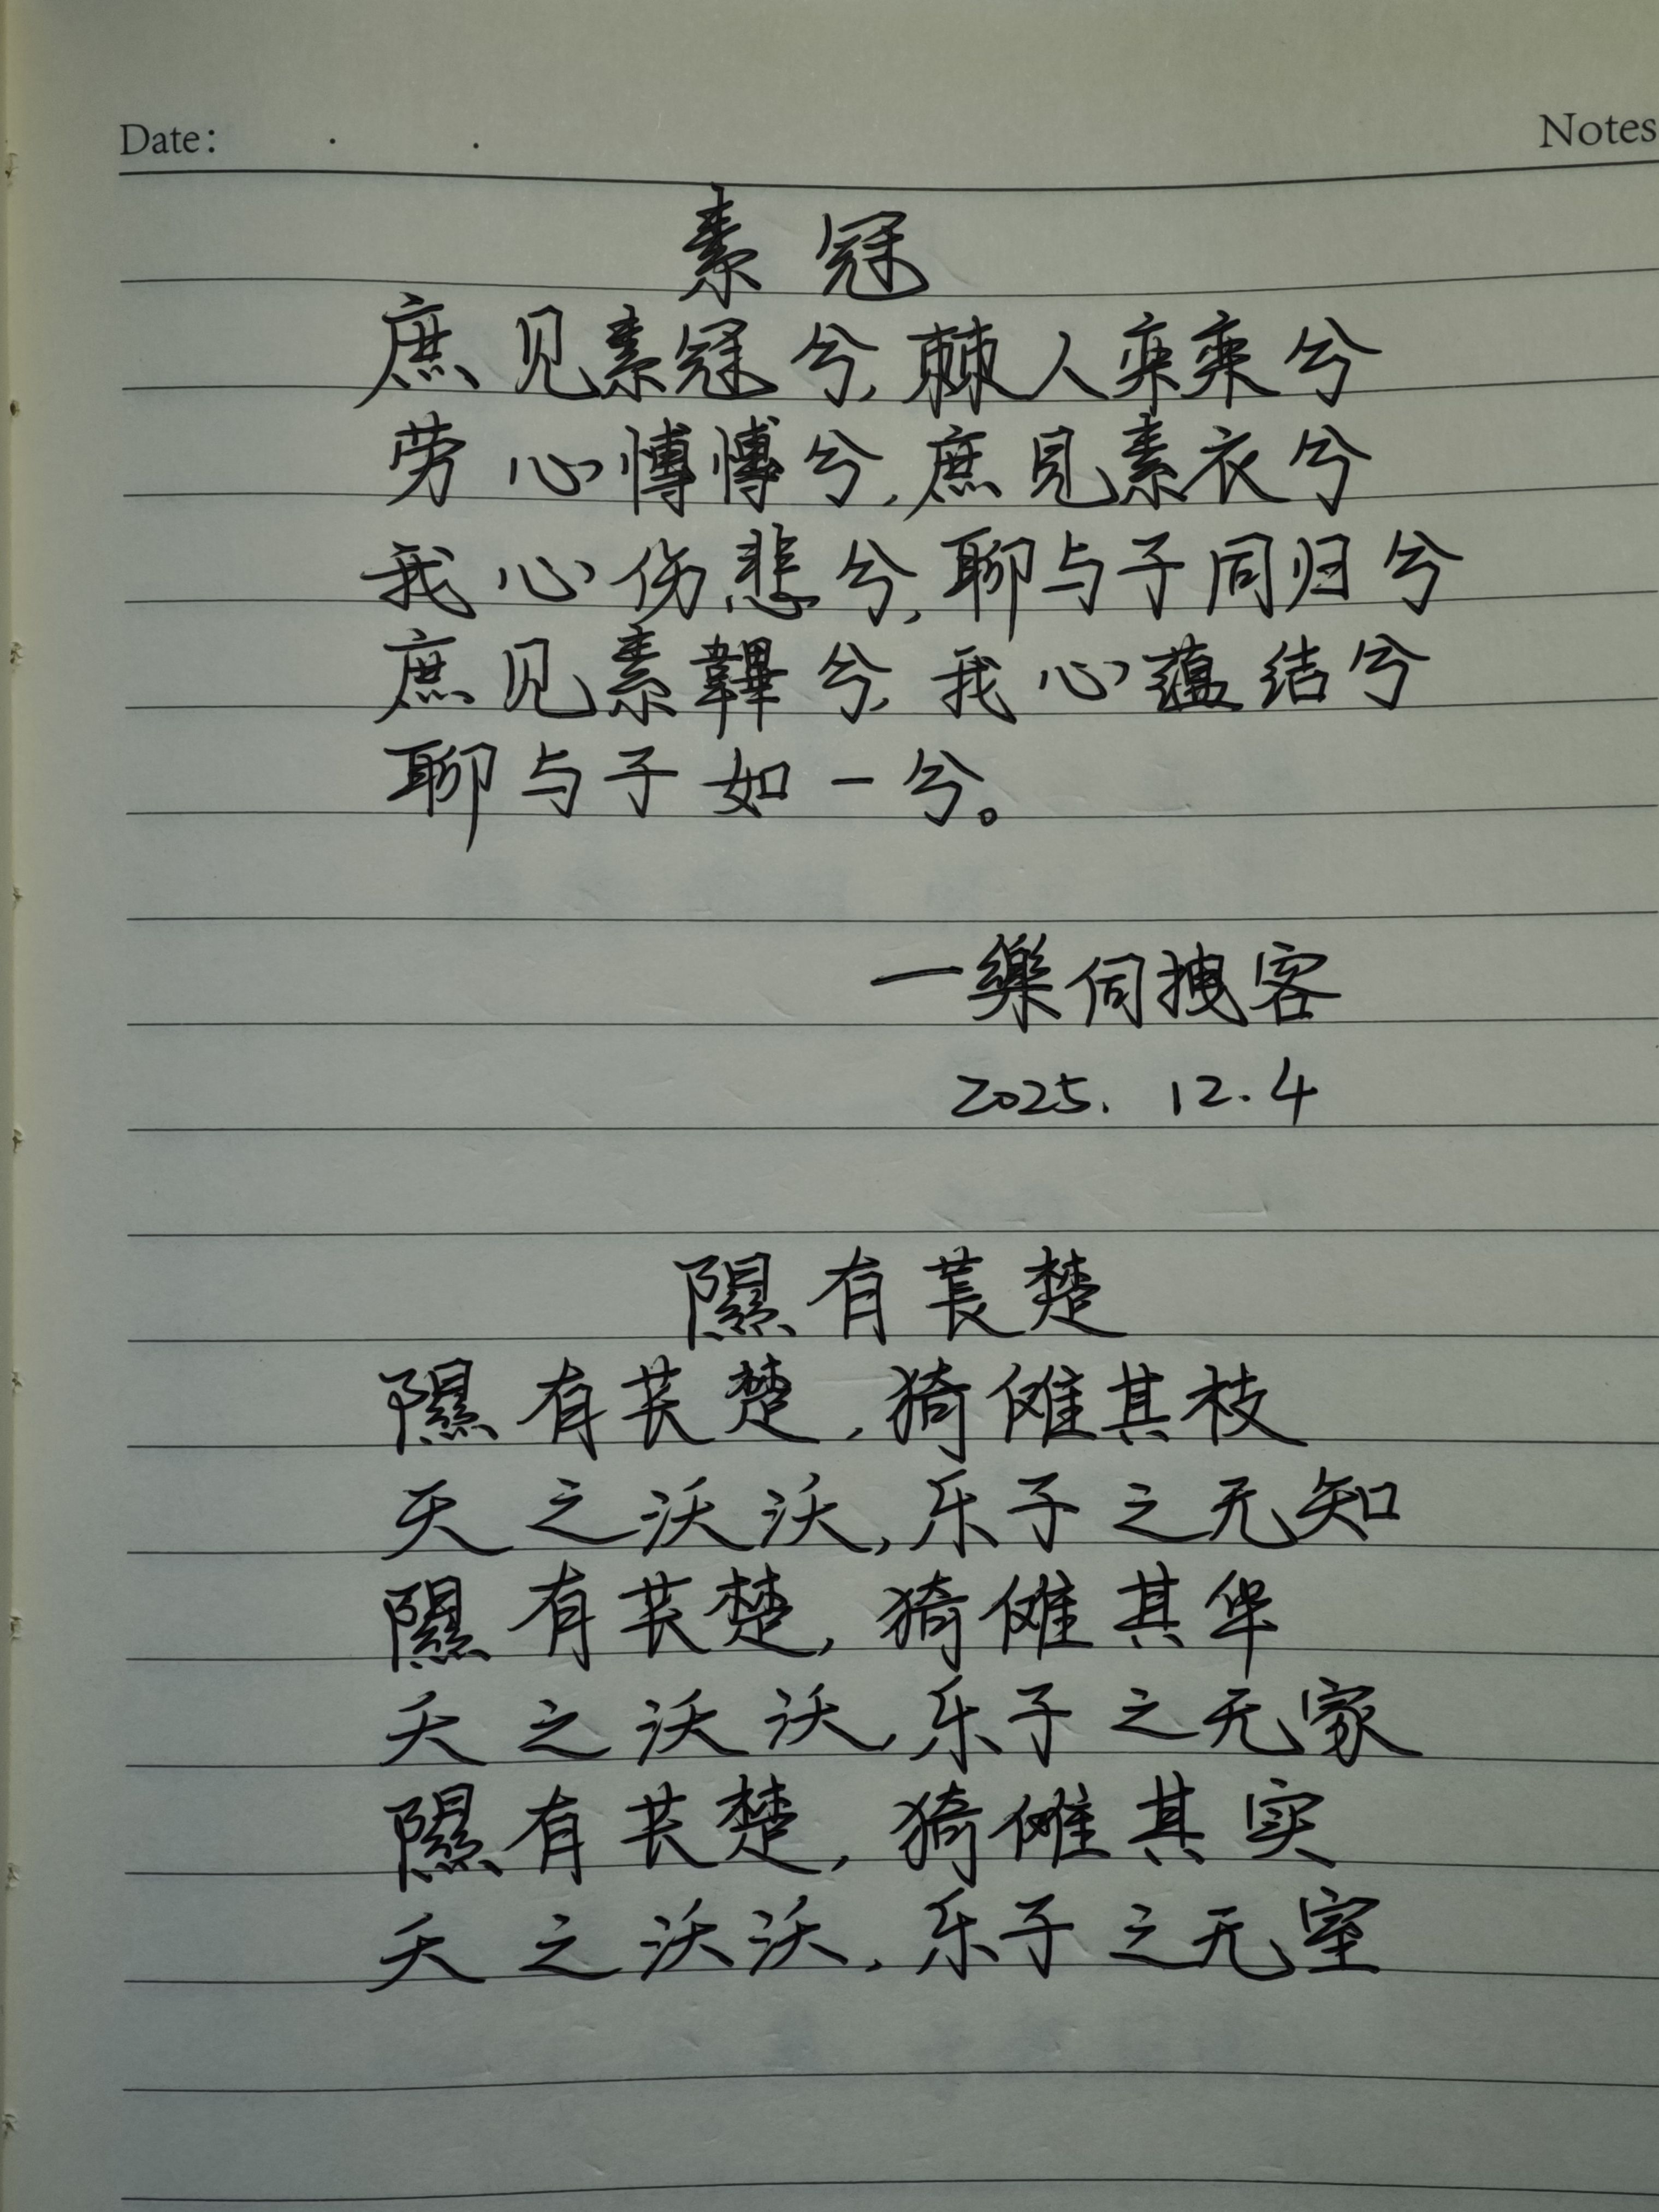 Date: . . Notes
素冠
庶见素冠兮,棘人栾栾兮
劳心慱慱兮,庶见素衣兮
我心伤悲兮,聊与子同归兮
庶见素韠兮,我心蕴结兮
聊与子如一兮。
一樂伺拽客
2025.12.4
隰有苌楚
隰有苌楚,猗傩其枝
夭之沃沃,乐子之无知
隰有苌楚,猗傩其华
夭之沃沃,乐子之无家
隰有苌楚,猗傩其实
夭之沃沃,乐子之无室